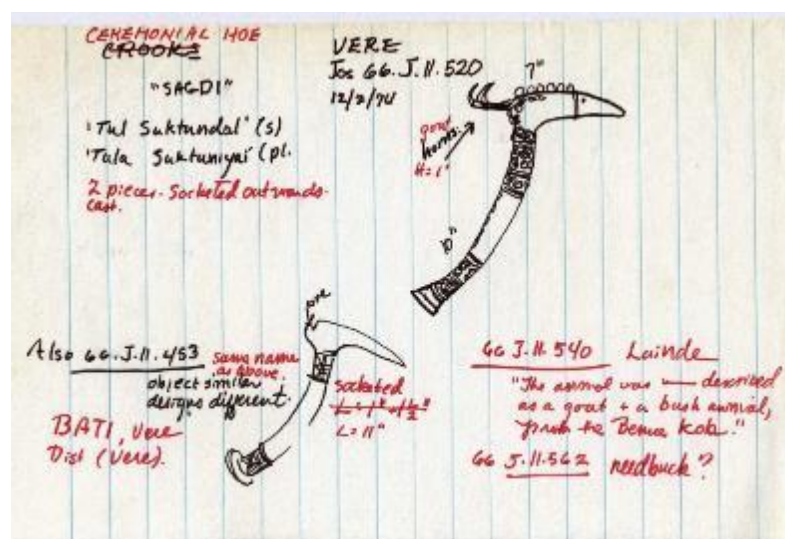 CEREMONIAL HOE
CROOKS
"SAGDI"
'Tul Suktundal' (s)
'Tula Suktuniyai' (pl.
2 pieces - Socketed outwards
cast.
VERE
Jos 66.J.11.520
12/2/74
7"
goat
horns.
H = 1"
10"
Also 66.J.11.453
same name
as above.
object similar
designs different.
BATI, Vere
Dist (Vere).
socketed
L = 11"
66 J.11.540 Lainde
"The animal was described
as a goat + a bush animal,
Kob."
66 J.11.562 reedbuck?